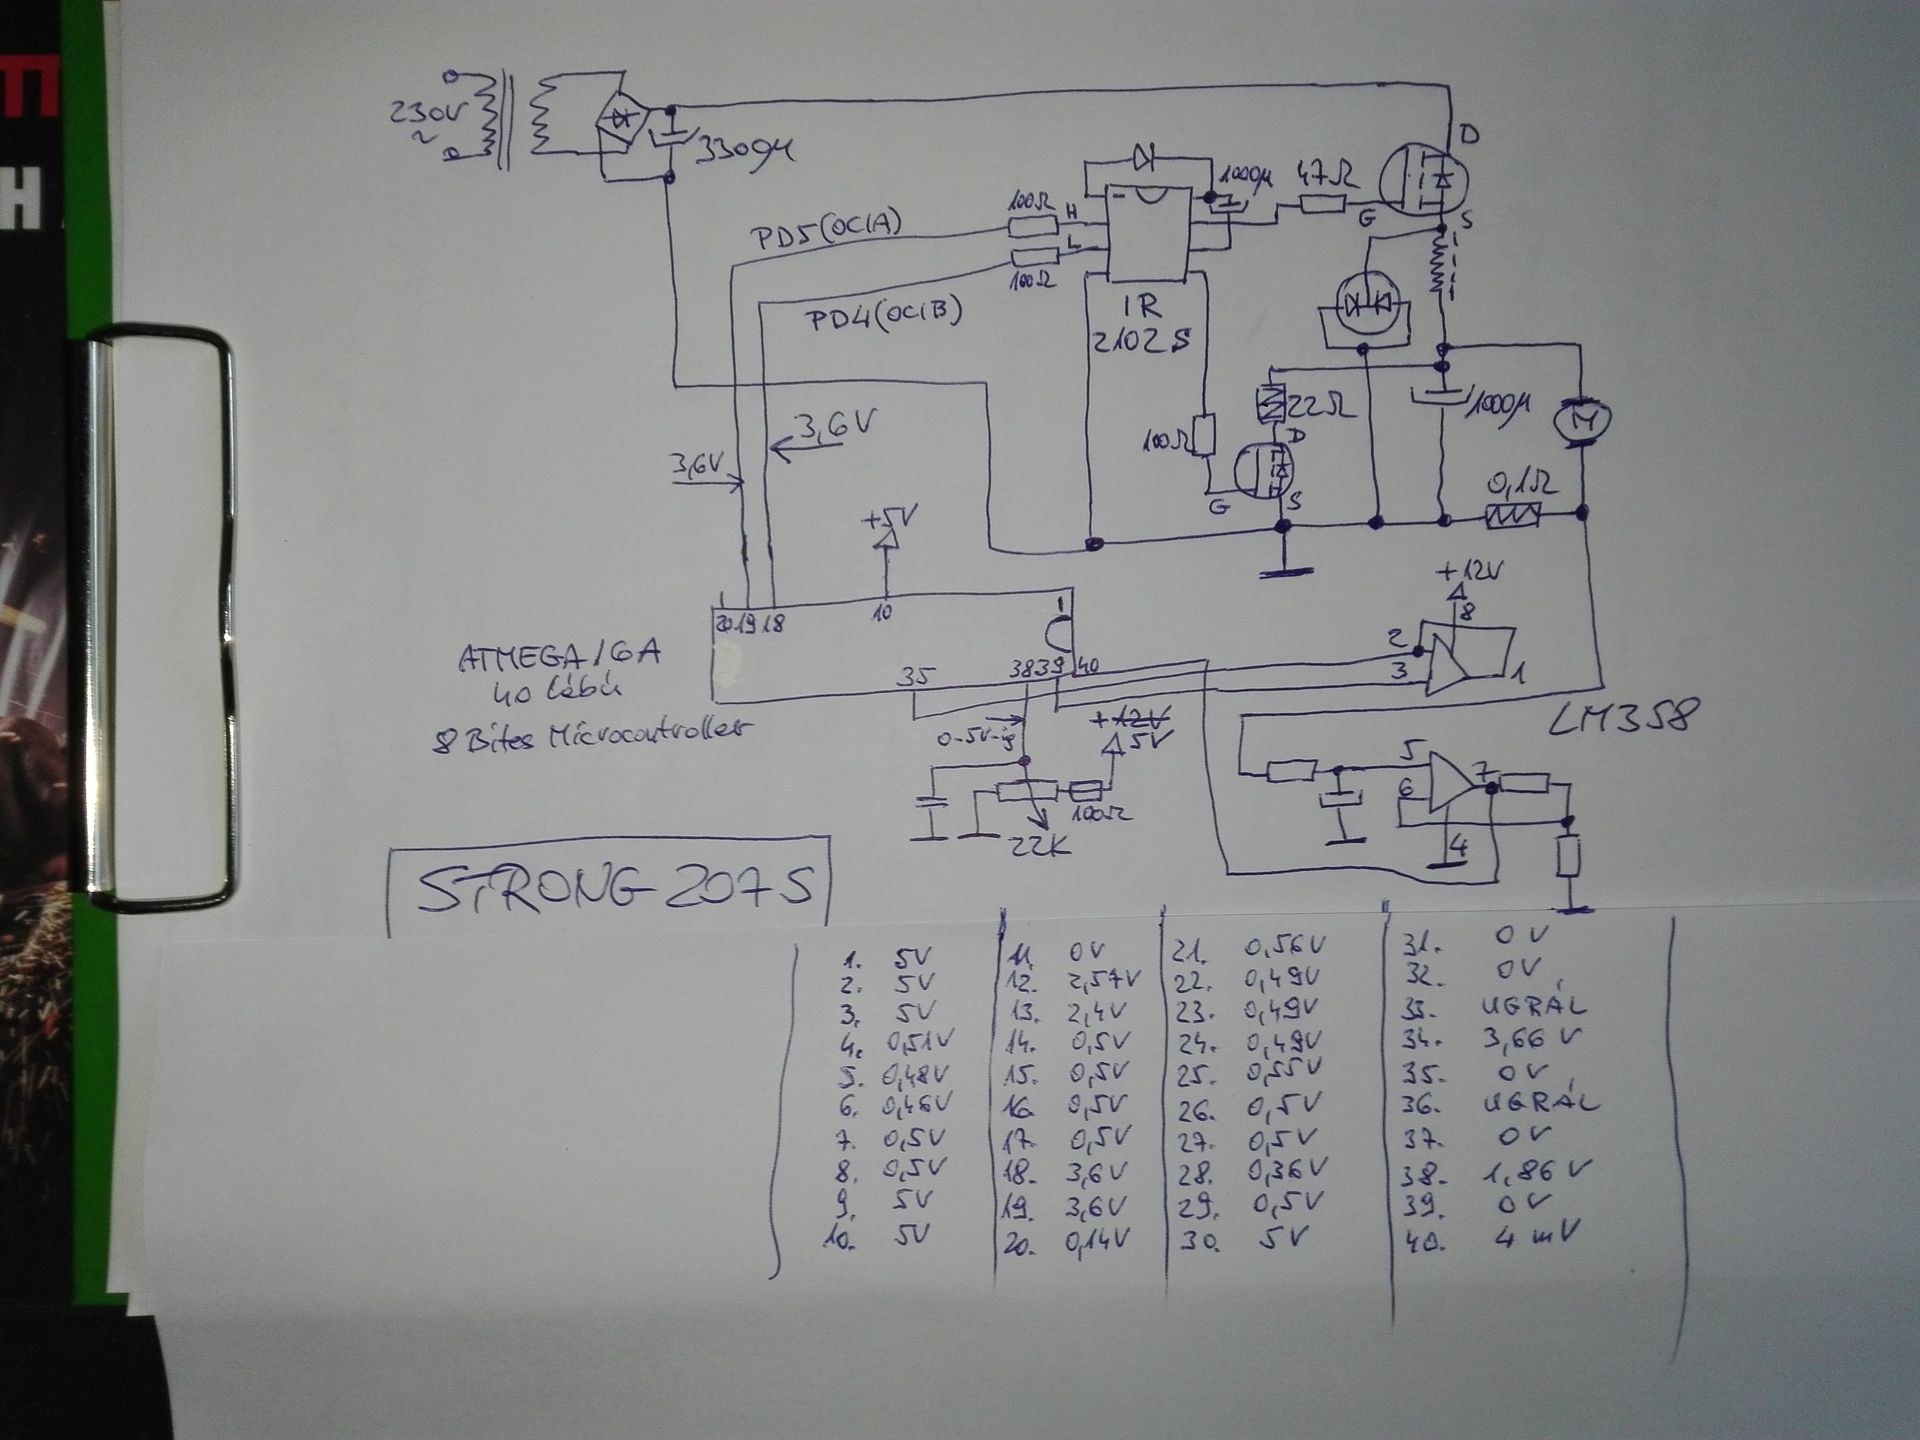 230V
~
3309µ
PD5(OC1A)
PD4(OC1B)
100Ω
H
L
100Ω
1000µ
47Ω
D
G
S
IR
2102S
22Ω
1000µ
M
100Ω
D
G
S
0,1Ω
3,6V
3,6V
+5V
+12V
20 19 18
10
1
ATMEGA16A
40 lábú
8 Bites Microcontroller
35
38 39 40
2
3
8
1
LM358
0-5V-ig
+12V
5V
100Ω
22K
5
6
7
4
STRONG 207S
1. 5V
2. 5V
3. 5V
4. 0,51V
5. 0,48V
6. 0,46V
7. 0,5V
8. 0,5V
9. 5V
10. 5V
11. 0V
12. 2,57V
13. 2,4V
14. 0,5V
15. 0,5V
16. 0,5V
17. 0,5V
18. 3,6V
19. 3,6V
20. 0,14V
21. 0,56V
22. 0,49V
23. 0,49V
24. 0,49V
25. 0,55V
26. 0,5V
27. 0,5V
28. 0,36V
29. 0,5V
30. 5V
31. 0V
32. 0V
33. UGRÁL
34. 3,66V
35. 0V
36. UGRÁL
37. 0V
38. 1,86V
39. 0V
40. 4mV
H